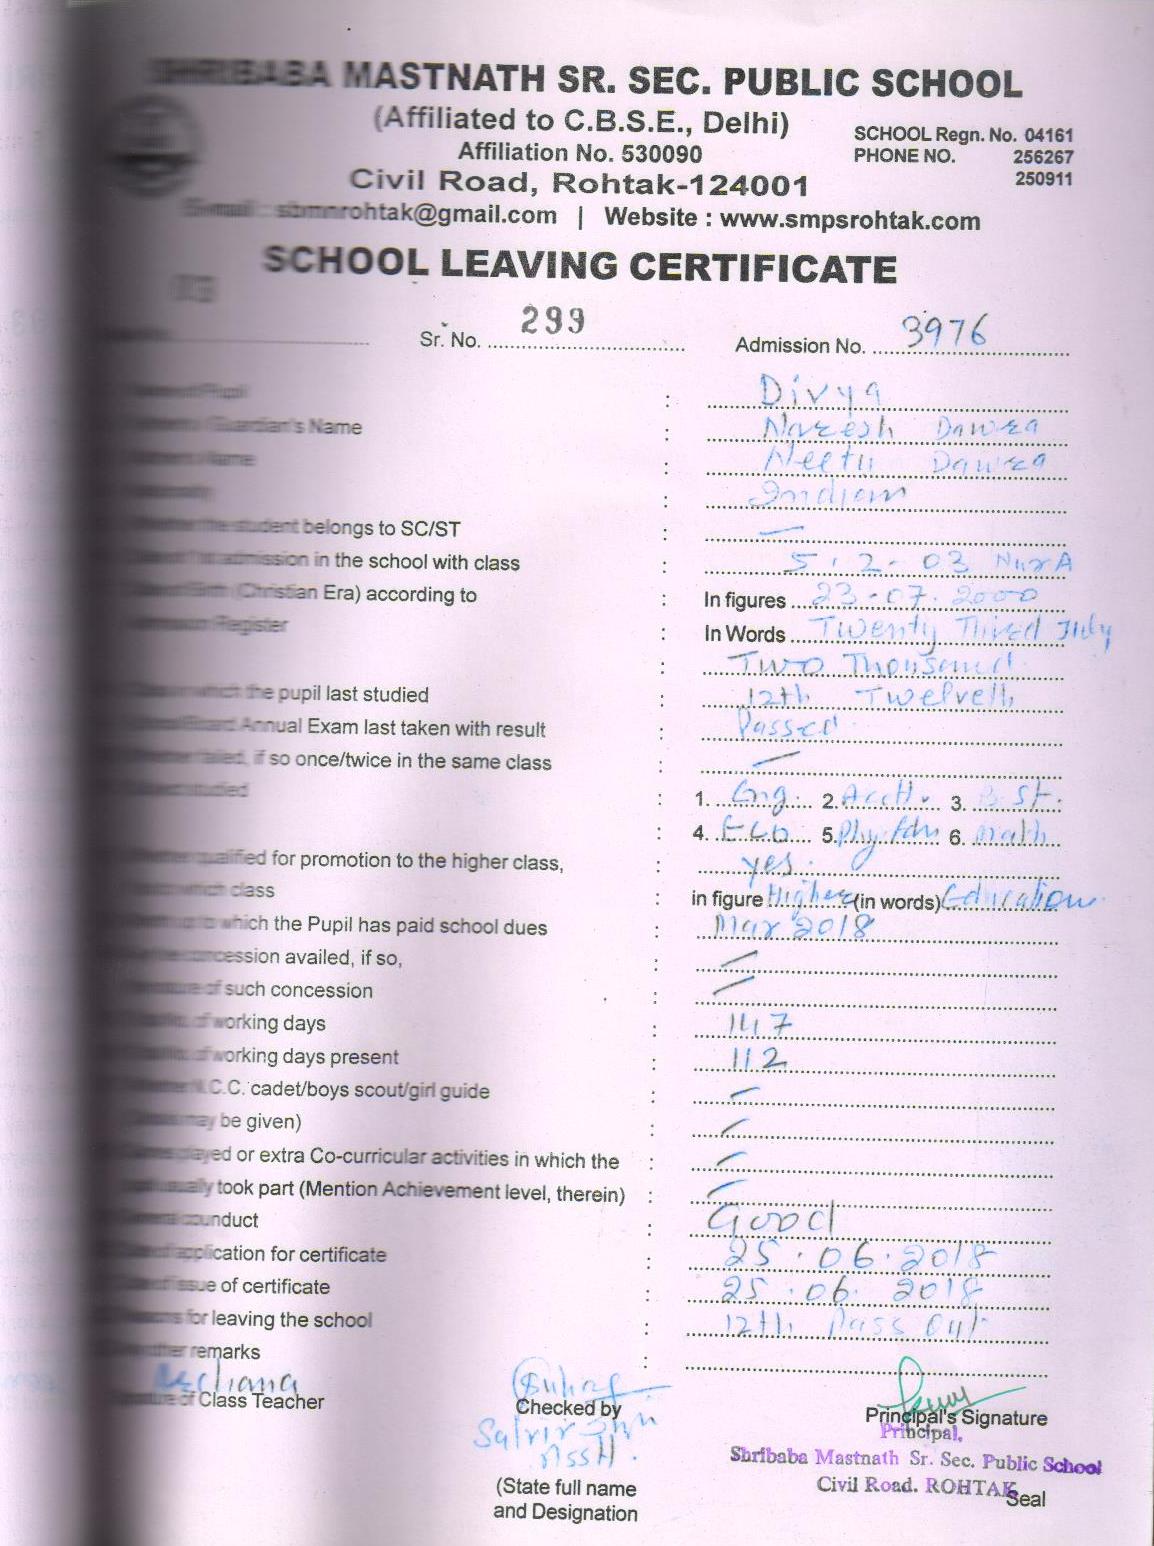 SHRIBABA MASTNATH SR. SEC. PUBLIC SCHOOL
(Affiliated to C.B.S.E., Delhi)
SCHOOL Regn. No. 04161
Affiliation No. 530090
PHONE NO. 256267
250911
Civil Road, Rohtak-124001
sbmnrohtak@gmail.com | Website : www.smpsrohtak.com
SCHOOL LEAVING CERTIFICATE
Sr. No. 299 Admission No. 3976
Pupil : Divya
Guardian's Name : Naresh Dawra
Name : Neetu Dawra
: Indian
the student belongs to SC/ST : —
admission in the school with class : 5.2-03 Nur A
(Christian Era) according to : In figures 23-07-2000
Register : In Words Twenty Third July
: Two Thousand
which the pupil last studied : 12th Twelveth
Annual Exam last taken with result : Passed
failed, if so once/twice in the same class : —
studied : 1. Eng. 2. Acctt. 3. B.St.
: 4. Eco 5. Phy.Edn 6. Math
qualified for promotion to the higher class, : yes.
which class : in figure Higher (in words) Education
which the Pupil has paid school dues : Mar 2018
concession availed, if so, : —
of such concession : —
of working days : 147
of working days present : 112
N.C.C. cadet/boys scout/girl guide : —
may be given) : —
played or extra Co-curricular activities in which the : —
usually took part (Mention Achievement level, therein) : —
counduct : Good
of application for certificate : 25.06.2018
of issue of certificate : 25.06.2018
for leaving the school : 12th Pass Out
other remarks :
of Class Teacher Checked by Principal's Signature
Principal,
Shribaba Mastnath Sr. Sec. Public School
Civil Road. ROHTAK
(State full name Seal
and Designation